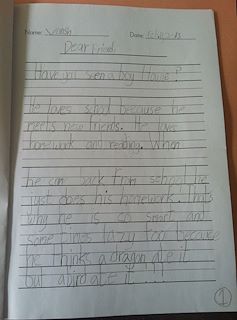 Name: 
Date: 
Dear friend,
Have you seen a boy ?
He loves school because he
meets new friends. He loves
homework and reading. When
he can back from school he
just does his homework. That's
why he is so smart and
some times lazy too because
he thinks a dragon ate it
but a bird ate it !!!
1